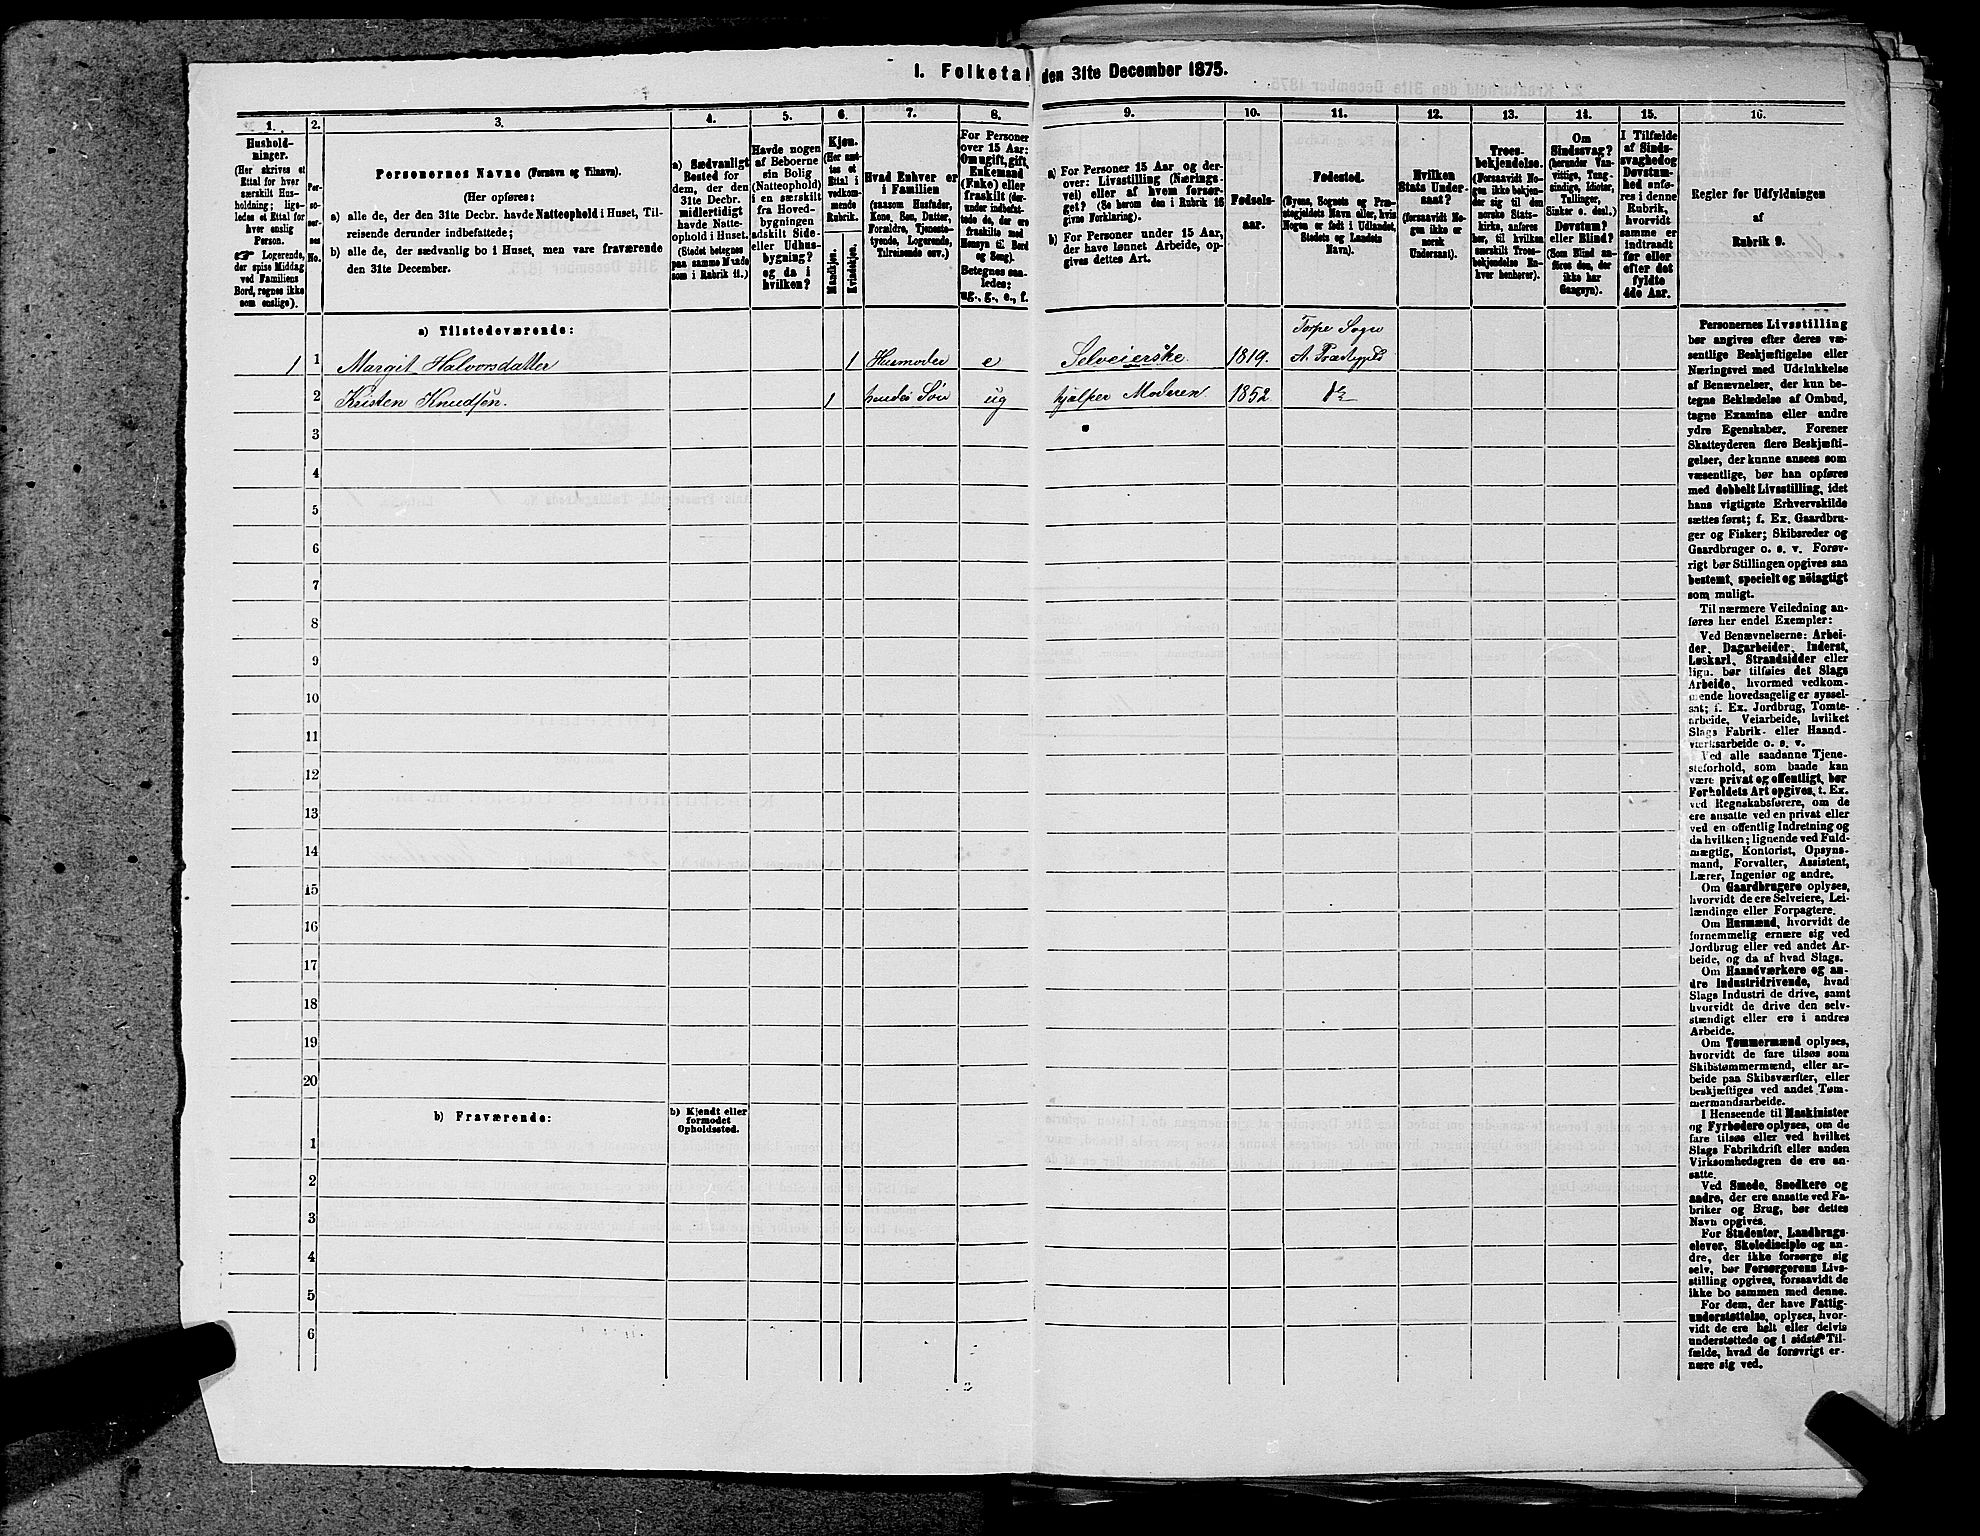 1. Folketal den 31te December 1875.
1.
Hushold-
ninger.
(Her skrives et
Ettal for hver
særskilt Hus-
holdning; lige-
ledes et Ettal for
hver enslig
Person.
☞ Logerende,
der spise Middag
ved Familiens
Bord, regnes ikke
som enslige).
2.
Per-
so-
ner-
nes
No.
3.
Personernes Navne (Fornavn og Tilnavn).
(Her opføres:
a) alle de, der den 31te Decbr. havde Natteophold i Huset, Til-
reisende derunder indbefattede;
b) alle de, der sædvanlig bo i Huset, men vare fraværende
den 31te December.
4.
a) Sædvanligt
Bosted for
dem, der den
31te Decbr.
midlertidigt
havde Natte-
ophold i Huset.
(Stedet betegnes
paa samme Maade
som i Rubrik 11.)
5.
Havde nogen
af Beboerne
sin Bolig
(Natteophold)
i en særskilt
fra Hoved-
bygningen
adskilt Side-
eller Udhus-
bygning?
og da i
hvilken?
6.
Kjøn.
(Her sæt-
tes et
Ettal i
vedkom-
mende
Rubrik.
Mandkjøn.
Kvindekjøn.
7.
Hvad Enhver er
i Familien
(saasom Husfader,
Kone, Søn, Datter,
Forældre, Tjeneste-
tyende, Logerende,
Tilreisende osv.)
8.
For Personer
over 15 Aar:
Om ugift, gift,
Enkemand
(Enke) eller
fraskilt (der-
under indbefat-
tede de, der ere
fraskilte med
Hensyn til Bord
og Seng).
Betegnes saa-
ledes:
ug., g., e., f.
9.
a) For Personer 15 Aar og der-
over: Livsstilling (Nærings-
vei) eller af hvem forsør-
get? (Se herom den i Rubrik 16
givne Forklaring).
b) For Personer under 15 Aar,
der have lønnet Arbeide, op-
gives dettes Art.
10.
Fødsels-
aar.
11.
Fødested.
(Byens, Sognets og Præ-
stegjeldets Navn eller, hvis
Nogen er født i Udlandet,
Stedets og Landets
Navn).
12.
Hvilken
Stats Under-
saat?
(forsaavidt No-
gen ikke er
norsk
Undersaat).
13.
Troes-
bekjendelse.
(Forsaavidt No-
gen ikke bekjen-
der sig til den
norske Stats-
kirke, anfø-
res her, til hvilken
særskilt Troes-
bekjendelse En-
hver henhører).
14.
Om
Sindssvag?
(herunder Van-
vittige, Tung-
sindige, Idioter,
Tullinger,
Sinker o. desl.)
Døvstum?
eller Blind?
(Som Blind an-
føres den, der
ikke har
Gangsyn).
15.
I Tilfælde
af Sinds-
svaghed og
Døvstum-
hed anfø-
res i denne
Rubrik,
hvorvidt
samme er
indtraadt
før eller
efter det
fyldte
4de Aar.
16.
Regler for Udfyldningen
af
Rubrik 9.
a) Tilstedeværende:
Torpe Sogn
1 1 Margit Halvorsdatter 1 Husmoder e Selveierske. 1819. A. Præstegjeld
2 Kristen Knudsen. 1 hendes Søn ug hjælper Moderen 1852 do
3
4
5
6
7
8
9
10
11
12
13
14
15
16
17
18
19
20
b) Fraværende:
b) Kjendt eller
formodet
Opholdssted.
1
2
3
4
5
6
Personernes Livsstilling
bør angives efter deres væ-
sentlige Beskjæftigelse eller
Næringsvei med Udelukkelse
af Benævnelser, der kun be-
tegne Beklædelse af Ombud,
tagne Examina eller andre
ydre Egenskaber. Forener
Skatteyderen flere Beskjæfti-
gelser, der kunne ansees som
væsentlige, bør han opføres
med dobbelt Livsstilling, idet
hans vigtigste Erhvervskilde
sættes først; f. Ex. Gaardbru-
ger og Fisker; Skibsreder og
Gaardbruger o. s. v. Forøv-
rigt bør Stillingen opgives saa
bestemt, specielt og nøiagtigt
som muligt.
Til nærmere Veiledning an-
føres her endel Exempler:
Ved Benævnelserne: Arbei-
der, Dagarbeider, Inderst,
Løskarl, Strandsidder eller
lign. bør tilføies det Slags
Arbeide, hvormed vedkom-
mende hovedsagelig er syssel-
sat; f. Ex. Jordbrug, Tomte-
arbeide, Veiarbeide, hvilket
Slags Fabrik- eller Haand-
værksarbeide o. s. v.
Ved alle saadanne Tjene-
steforhold, som baade kan
være privat og offentligt, bør
Forholdets Art opgives, t. Ex.
ved Regnskabsførere, om de
ere ansatte ved en privat eller
ved en offentlig Indretning og
da hvilken; lignende ved Fuld-
mægtig, Kontorist, Opsyns-
mand, Forvalter, Assistent,
Lærer, Ingeniør og andre.
Om Gaardbrugere oplyses,
hvorvidt de ere Selveiere, Lei-
lændinge eller Forpagtere.
Om Husmænd, hvorvidt de
fornemmelig ernære sig ved
Jordbrug eller ved andet Ar-
beide, og da af hvad Slags.
Om Haandværkere og an-
dre Industridrivende, hvad
Slags Industri de drive, samt
hvorvidt de drive den selv-
stændigt eller ere i andres
Arbeide.
Om Tømmermænd oplyses,
hvorvidt de fare tilsøs som
Skibstømmermænd, eller ar-
beide paa Skibsværfter, eller
beskjæftiges ved andet Tøm-
mermandsarbeide.
I Henseende til Maskinister
og Fyrbødere oplyses, om de
fare tilsøs eller ved hvilket
Slags Fabrikdrift eller anden
Virksomhedsgren de ere an-
satte.
Ved Smede, Snedkere og
andre, der ere ansatte ved Fa-
briker og Brug, bør dettes
Navn opgives.
For Studenter, Landbrugs-
elever, Skoledisciple og an-
dre, der ikke forsørge sig
selv, bør Forsørgerens Livs-
stilling opgives, forsaavidt de
ikke bo sammen med denne.
For dem, der have Fattig-
understøttelse, oplyses, hvor-
vidt de ere helt eller delvis
understøttede og i sidste Til-
fælde, hvad de forøvrigt er-
nære sig ved.